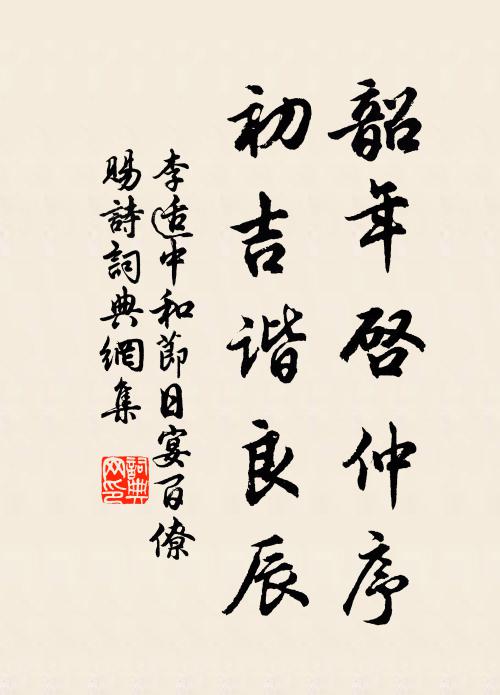 韶年啓仲序
初吉谐良辰
李适中和節日宴百僚
賜詩詞典網集
詞典
网印